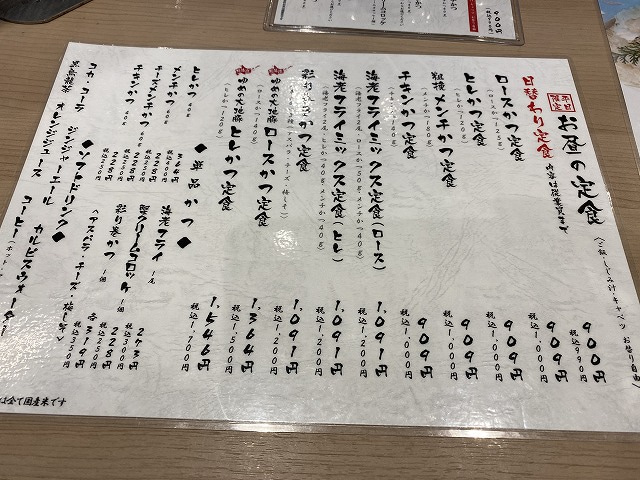 平日限定
お昼の定食
(ご飯・しじみ汁・キャベツ お替り自由)
日替わり定食 900円
内容は従業員まで
税込990円
ロースかつ定食 909円
(ロースかつ125g)
税込1,000円
ヒレかつ定食 909円
(ヒレかつ120g)
税込1,000円
粗挽メンチかつ定食 909円
(メンチかつ180g)
税込1,000円
チキンかつ定食 909円
(チキンかつ140g)
税込1,000円
海老フライミックス定食(ロース) 1,091円
税込1,200円
海老フライミックス定食(ヒレ) 1,091円
税込1,200円
彩り巻かつ定食 1,091円
税込1,200円
ゆめの大地豚 ロースかつ定食 1,364円
税込1,500円
ゆめの大地豚 ヒレかつ定食 1,546円
(ヒレかつ120g)
税込1,700円
◆単品かつ◆
ヒレかつ 40g 364円
税込400円
メンチかつ 40g 228円
税込250円
チーズメンチかつ 228円
チキンかつ 228円
海老フライ 1尾 273円
税込300円
蟹クリームコロッケ 1個 228円
税込250円
彩り巻かつ 1個
(アスパラ・チーズ・梅しそ) 各319円
税込350円
◆ソフトドリンク◆
コカ・コーラ ジンジャーエール カルピスウォーター
黒烏龍茶 オレンジジュース コーヒー
は全て国産米です
900円